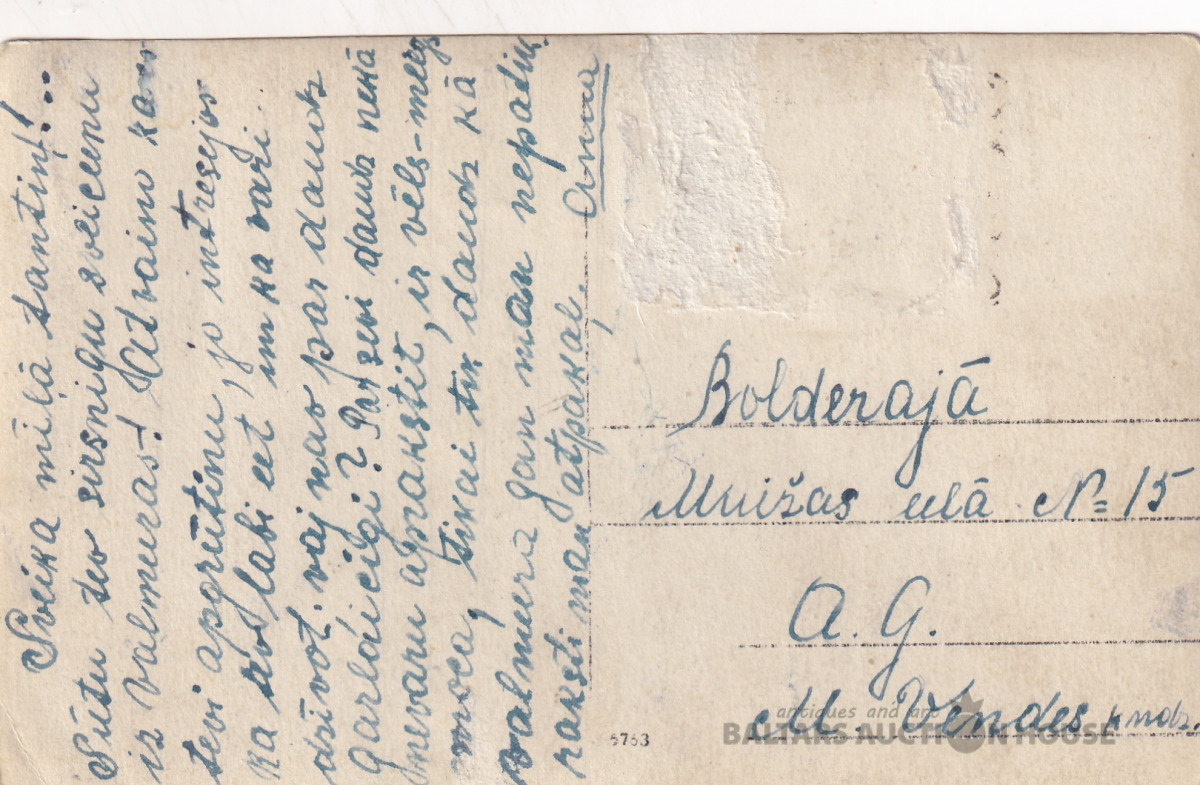 Sveika mīļā tantiņ!..
Sūtu tev sirsnigu sveicenu
iz valmieras! Atvaino ka
tevi apgrūtinu, jo intresejos
ka tev labi eet un ka vari
dzīvot. vaj nav par daudz
Garlaicigi? Par sevi daudz nekā
nevaru aprakstīt, ir vēls-mieg
moca, tikai tik daudz kā
valmiera gan man nepatīk.
raksti man atpakaļ, Anna
Bolderajā
Muižas ielā № 15
A. G.
M Vendes kndz.
5753
antiques and art
BALTARS AUCTION HOUSE